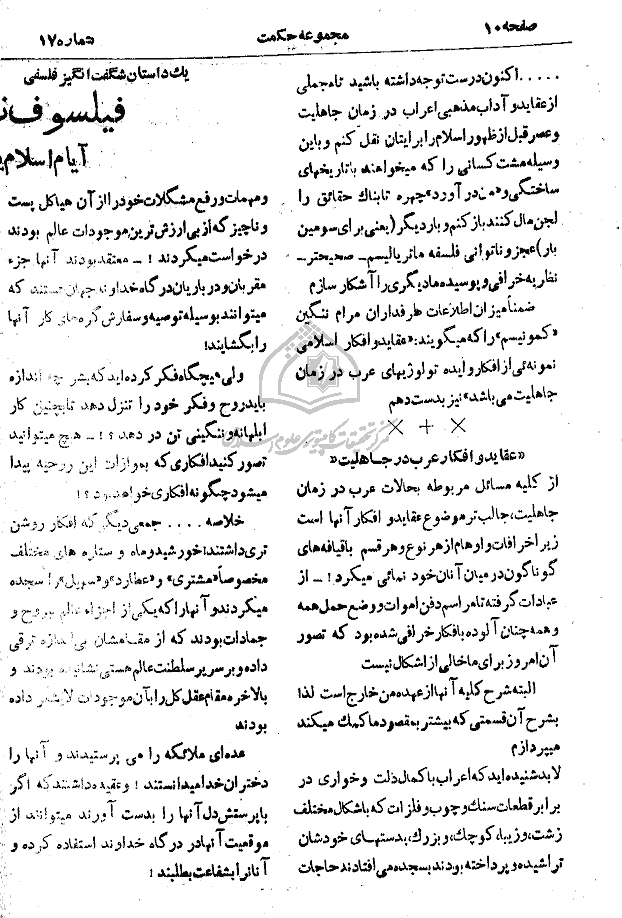 صفحه ۱۰
مجموعه حکمت
شماره ۱۷
..... اکنون درست توجه داشته باشید تا مجملی
از عقاید و آداب مذهبی اعراب در زمان جاهلیت
و عصر قبل از ظهور اسلام را برایتان نقل کنم و باین
وسیله مشت کسانی را که میخواهند با تاریخهای
ساختگی و «من درآورد» چهره تابناك حقائق را
لجن مال کنند باز کنم و بار دیگر (یعنی برای سومین
بار) عجز و ناتوانی فلسفه ماتریالیسم ـ صحیحتر ـ
نظریه خرافی و پوسیده مادیگری را آشکار سازم
ضمناً میزان اطلاعات طرفداران مرام ننگین
«کمونیسم» را که میگویند: «عقاید و افکار اسلامی
نمونه ئی از افکار و ایده ئولوژیهای عرب در زمان
جاهلیت می باشد» نیز بدست دهم
× + ×
«عقاید و افکار عرب در جاهلیت»
از کلیه مسائل مربوطه بحالات عرب در زمان
جاهلیت، جالب تر موضوع عقاید و افکار آنها است
زیرا خرافات و اوهام از هر نوع و هر قسم باقیافه های
گوناگون در میان آنان خود نمائی میکرد! ـ از
عبادات گرفته تا مراسم دفن اموات و وضع حمل همه
و همه چنان آلوده بافکار خرافی شده بود که تصور
آن امروز برای ما خالی از اشکال نیست
البته شرح کلیه آنها از عهده من خارج است لذا
بشرح آن قسمتی که بیشتر بمقصود ما کمك میکند
میپردازم
لابد شنیده اید که اعراب با کمال ذلت و خواری در
برابر قطعات سنگ و چوب و فلزات که باشکال مختلف
زشت، و زیبا، کوچك، و بزرك، بدستهای خودشان
تراشیده و پرداخته بودند بسجده می افتادند حاجات
یك داستان شگفت انگیز فلسفی
فیلسوف
آیام اسلام
و مهمات و رفع مشگلات خود را از آن هیاکل پست
و ناچیز که از بی ارزش ترین موجودات عالم بودند
درخواست میکردند! ـ معتقد بودند آنها جزء
مقربان و درباریان درگاه خداوند جهان هستند که
میتوانند بوسیله توصیه و سفارش گره های کار آنها
را بگشایند!
ولی هیچگاه فکر کرده اید که بشر چه اندازه
باید روح و فکر خود را تنزل دهد تا بچنین کار
ابلهانه و ننگینی تن در دهد؟! ـ هیچ میتوانید
تصور کنید افکاری که بموازات این روحیه پیدا
میشود چگونه افکاری خواهد بود؟!
خلاصه .... جمعی دیگر که افکار روشن
تری داشتند! خورشید و ماه و ستاره های مختلف
مخصوصاً «مشتری» و «عطارد» و «سهیل» را سجده
میکردند و آنها را که یکی از اجزاء عالم بیروح و
جمادات بودند که از مقامشان بی اندازه ترقی
داده و بر سریر سلطنت عالم هستی نشانیده بودند و
بالاخره مقام عقل کل را بآن موجودات لایشعر داده
بودند
عده ای ملائکه را می پرستیدند و آنها را
دختران خدا میدانستند! و عقیده داشتند که اگر
با پرستش دل آنها را بدست آورند میتوانند از
موقعیت آنها در درگاه خداوند استفاده کرده و
آنانرا بشفاعت بطلبند!